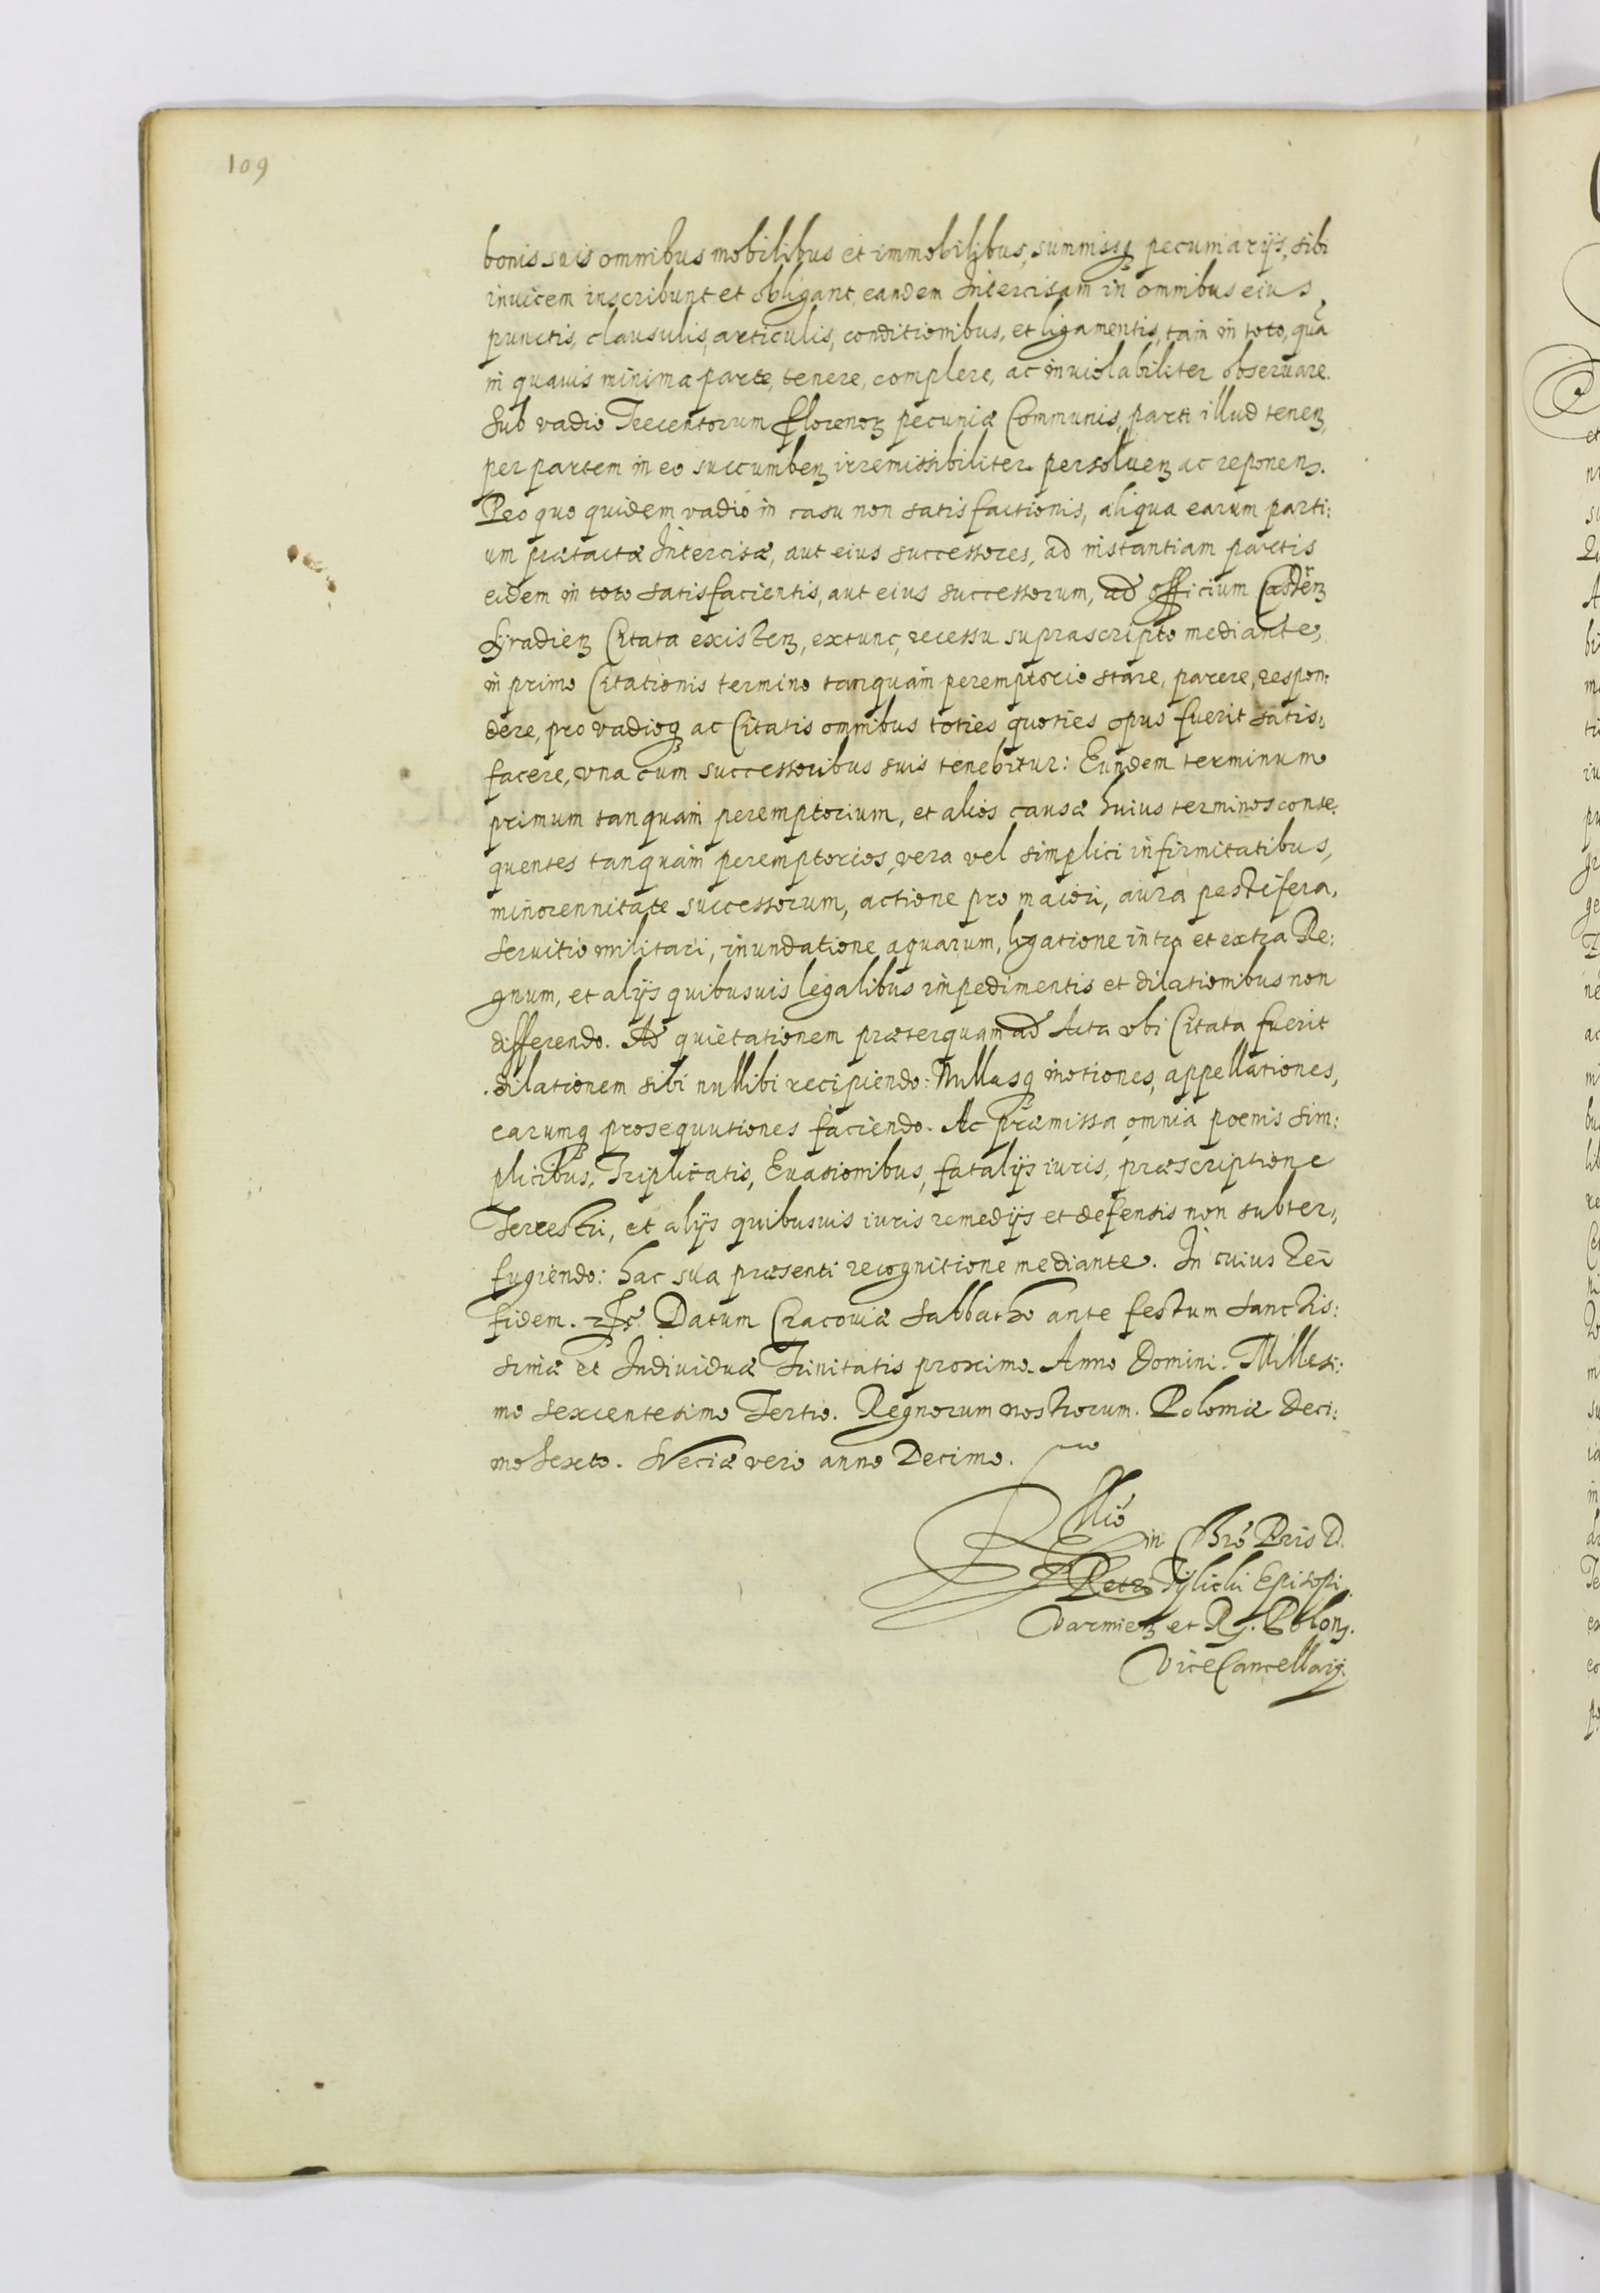 109
bonis suis omnibus mobilibus et immobilibus, summisq pecuniarijs, sibi
inuicem inscribunt et obligant, eandem Intercisam in omnibus eius
punctis, clausulis, articulis, conditionibus, et ligamentis, tam in toto, quã
in quauis minima parte, tenere, complere, ac inuiolabiliter obseruare.
Sub vadio Trecentorum Florenoꝝ pecuniæ Communis, parti illud tenenꝫ,
per partem in eo succumbenꝫ irremissibiliter persoluenꝫ ac reponenꝫ.
Pro quo quidem vadio in casu non satisfactionis, aliqua earum parti:
um prætactæ Intercisæ, aut eius successores, ad instantiam partis
eidem in toto satisfacientis, aut eius successorum, ad officium Castren̄ꝫ
Syradienꝫ Citata existenꝫ, extunc, recessu suprascripto mediante,
in primo Citationis termino tanquam peremptorio stare, parere, respon:
dere, pro vadioq ac Citatis omnibus toties quoties opus fuerit satis:
facere, vna cum successoribus suis tenebitur: Eundem terminum
primum tanquam peremptorium, et alios causæ huius terminos conse:
quentes tanquam peremptorios, vera vel simplici infirmitatibus,
minorennitate successorum, actione pro maiori, aura pestifera,
seruitio militari, inundatione aquarum, ligatione intra et extra Re:
gnum, et alijs quibusuis legalibus impedimentis et dilationibus non
differendo. Ad quietationem præterquam ad Acta vbi Citata fuerit
dilationem sibi nullibi recipiendo: Nullasq motiones, appellationes,
earumq prosequutiones faciendo. Ac præmissa omnia poenis sim:
plicibus, Triplicatis, Euasionibus, fatalijs iuris, præscriptione
Terrestri, et alijs quibusuis iuris remedijs et defensis non subter:
fugiendo: hac sua præsenti recognitione mediante. In cuius rei
fidem. Datum Cracouiæ Sabbatho ante festum Sanctis:
simæ et Indiuiduæ Trinitatis proximo. Anno Domini. Millesi:
mo sexcentesimo Tertio. Regnorum nostrorum. Poloniæ Deci:
mo Sexto. Sueciæ vero anno Decimo.
in Chrō Pris D.
Petri Tylicki Episcopi
Varmienꝫ et R. Polonꝫ.
ViceCancellarij.